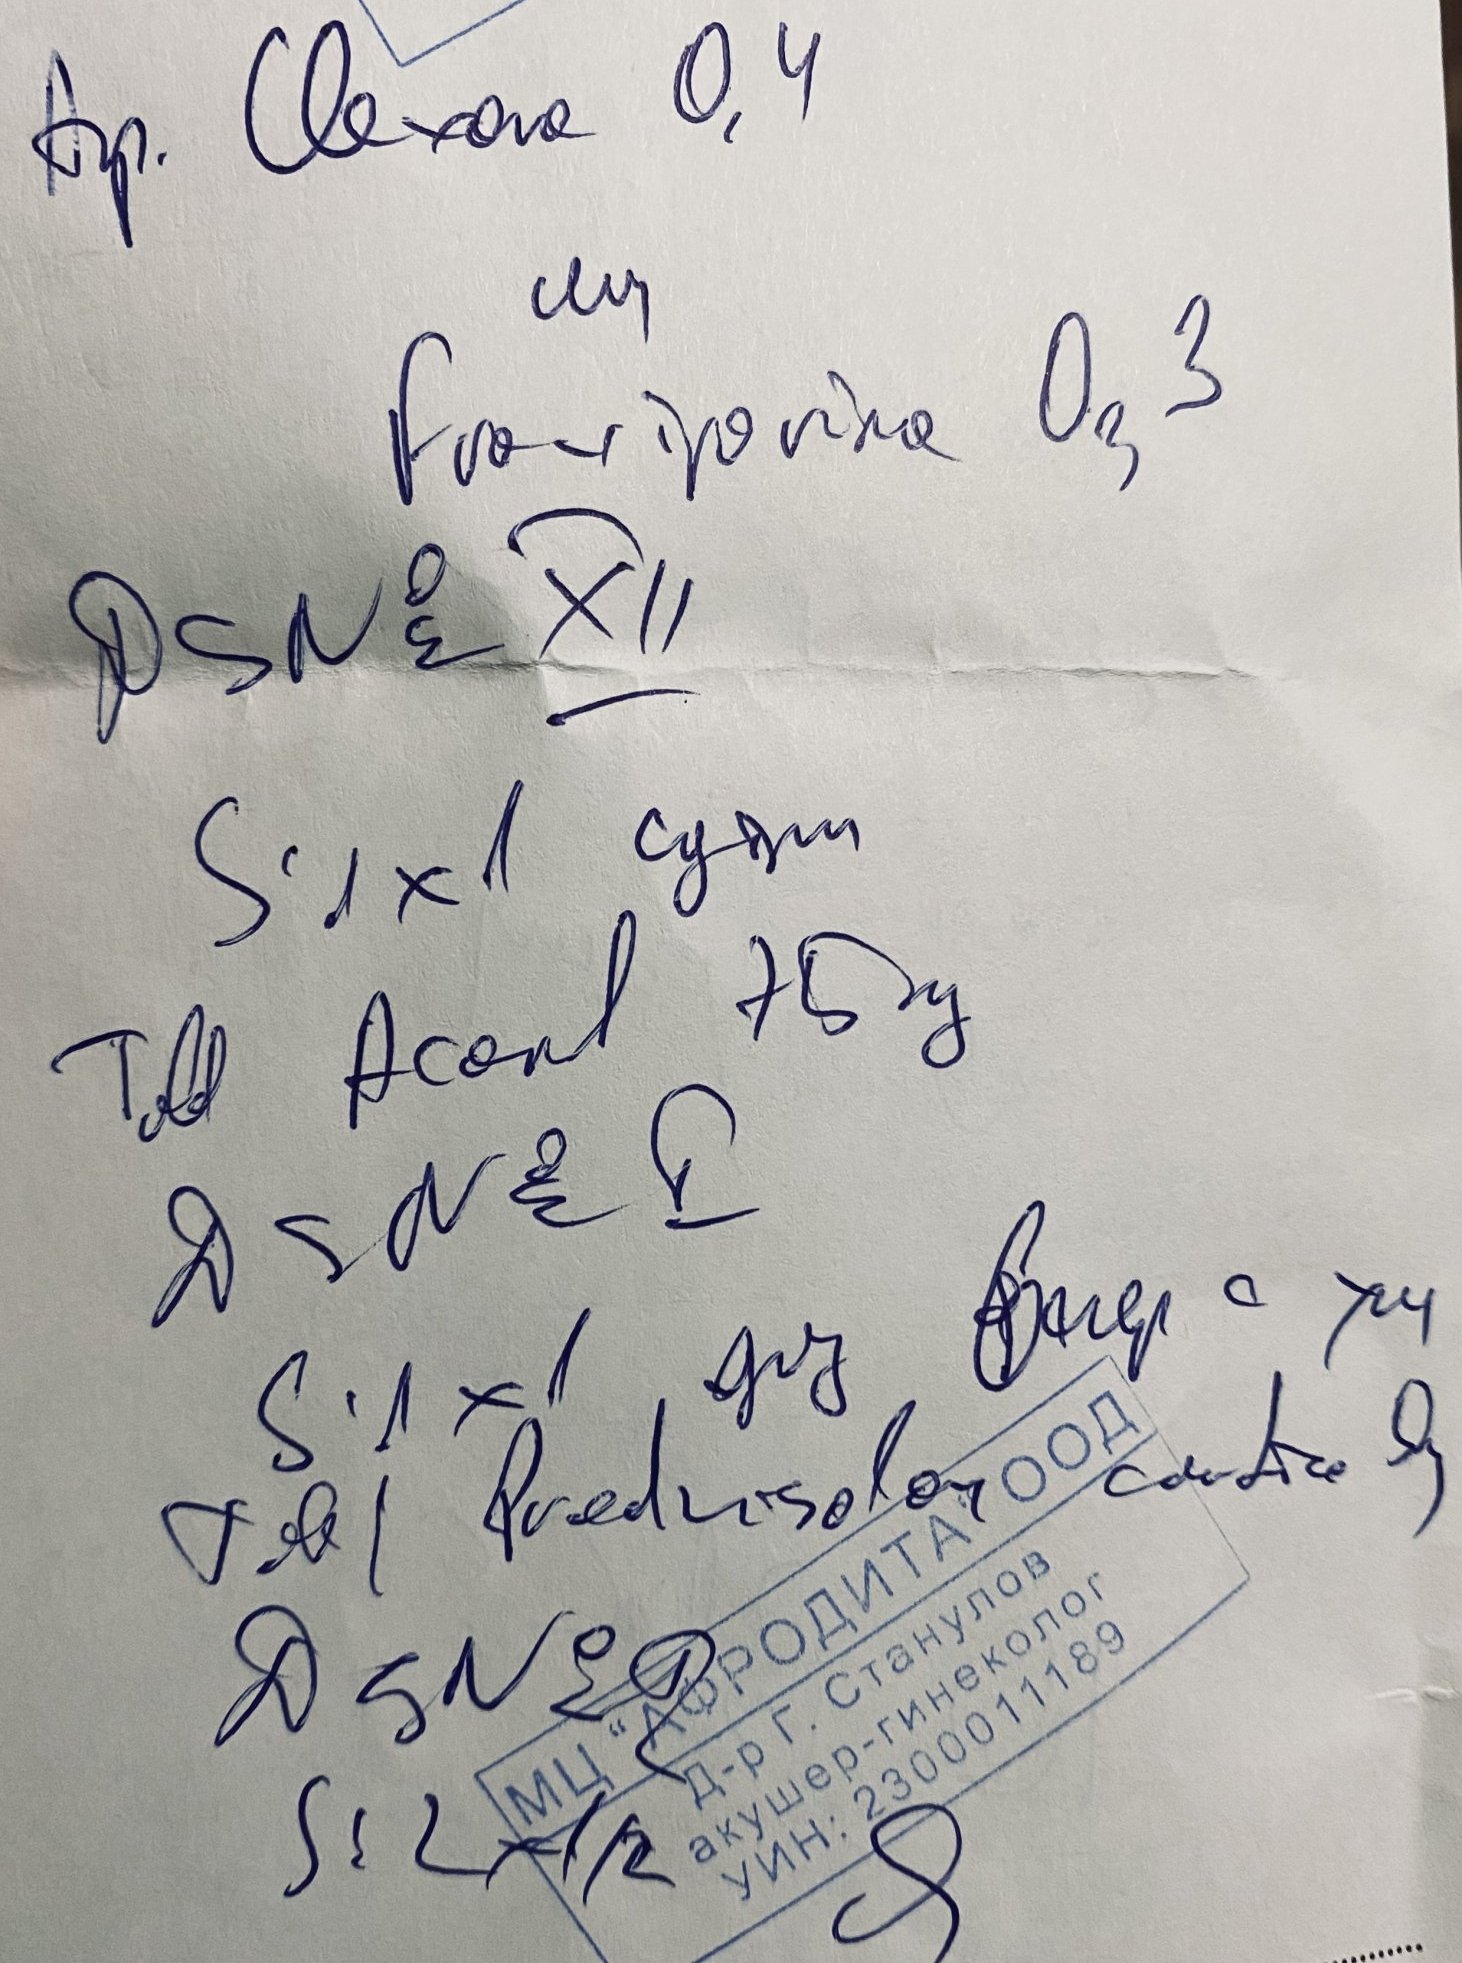 Амр. Clexane 0,4
или
Fraxiparine 0,3
DS № XII
S: 1x1 сутрин
Tabl Acard 75 mg
DS № I
S: 1x1 вечер с хр
Tabl Prednisolon
DS №
S: 2x1/2
МЦ "АФРОДИТА" ООД
Д-р Г. Станулов
акушер-гинеколог
УИН: 2300011189